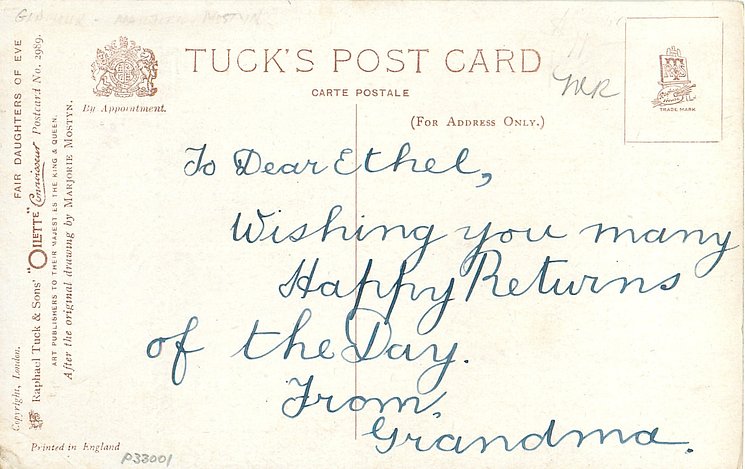 TUCK'S POST CARD
By Appointment.
CARTE POSTALE
(FOR ADDRESS ONLY.)
TRADE MARK
To Dear Ethel,
Wishing you many
Happy Returns
of the Day.
From,
Grandma.
FAIR DAUGHTERS OF EVE
Copyright, London.
Raphael Tuck & Sons' "OILETTE" Connoisseur Postcard No. 2989.
ART PUBLISHERS TO THEIR MAJESTIES THE KING & QUEEN.
After the original drawing by MARJORIE MOSTYN.
Printed in England
P33001